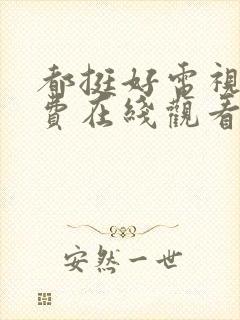 都挺好電視
費在綫觀看
安然一世